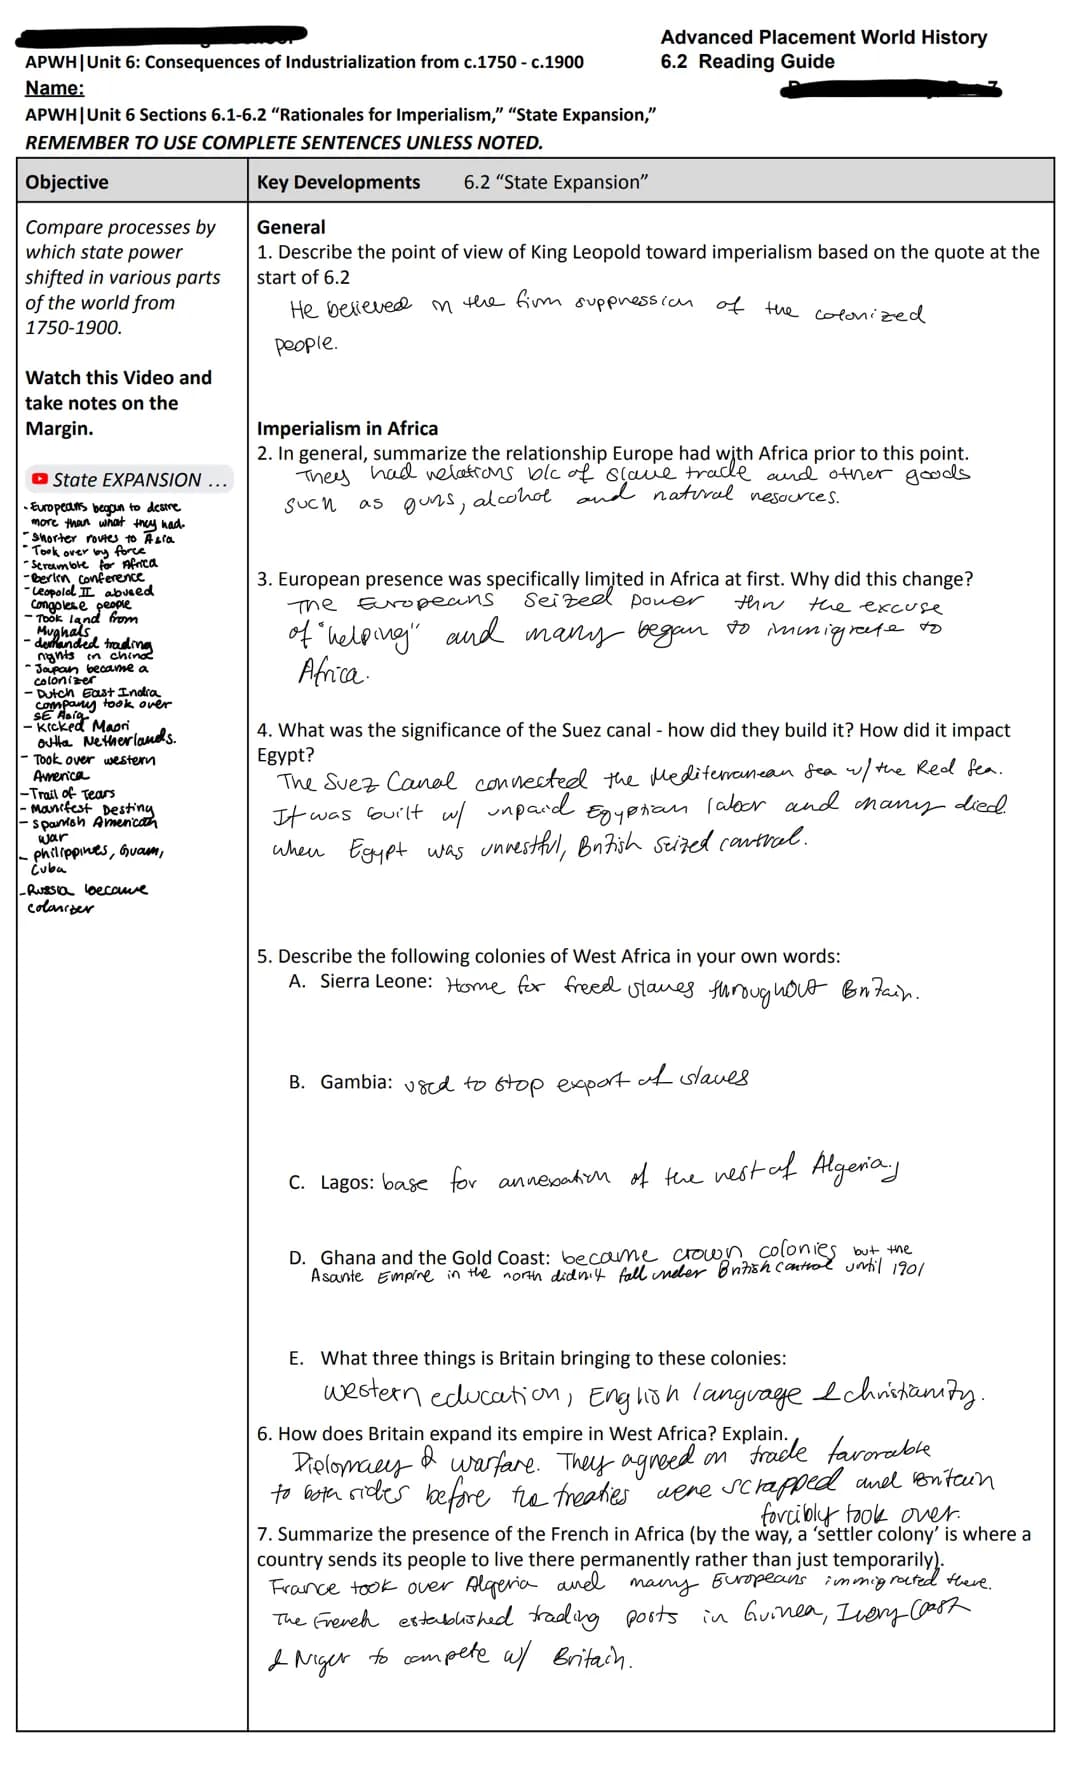 APWH|Unit 6: Consequences of Industrialization from c.1750 - c.1900
Advanced Placement World History
6.2 Reading Guide
Name:
APWH|Unit 6 Sections 6.1-6.2 “Rationales for Imperialism,” “State Expansion,”
REMEMBER TO USE COMPLETE SENTENCES UNLESS NOTED.
Objective
Key Developments 6.2 “State Expansion”
Compare processes by
which state power
shifted in various parts
of the world from
1750-1900.
Watch this Video and
take notes on the
Margin.
State EXPANSION ...
- Europeans began to desire
more than what they had.
- Shorter routes to Asia
- Took over by force
- Scramble for Africa
- Berlin Conference
- Leopold II abused
Congolese people
- Took land from
Mughals
- demanded trading
rights in china
- Japan became a
colonizer
- Dutch East India
company took over
SE Asia
- Kicked Maori
outta Netherlands.
- Took over western
America
- Trail of Tears
- Manifest Destiny
- Spanish American
war
- philippines, Guam,
Cuba
- Russia became
colonizer
General
1. Describe the point of view of King Leopold toward imperialism based on the quote at the
start of 6.2
He believed in the firm suppression of the colonized
people.
Imperialism in Africa
2. In general, summarize the relationship Europe had with Africa prior to this point.
They had relations b/c of slave trade and other goods
such as guns, alcohol and natural resources.
3. European presence was specifically limited in Africa at first. Why did this change?
The Europeans seized power thru the excuse
of "helping" and many began to immigrate to
Africa.
4. What was the significance of the Suez canal - how did they build it? How did it impact
Egypt?
The Suez Canal connected the Mediterranean Sea w/ the Red Sea.
It was built w/ unpaid Egyptian labor and many died.
when Egypt was unrestful, British seized control.
5. Describe the following colonies of West Africa in your own words:
A. Sierra Leone: Home for freed slaves throughout Britain.
B. Gambia: used to stop export of slaves
C. Lagos: base for annexation of the rest of Algeria.
D. Ghana and the Gold Coast: became crown colonies but the
Asante Empire in the north didn't fall under British control until 1901
E. What three things is Britain bringing to these colonies:
western education, English language & christianity.
6. How does Britain expand its empire in West Africa? Explain.
Diplomacy & warfare. They agreed on trade favorable
to both sides before the treaties were scrapped and Britain
forcibly took over.
7. Summarize the presence of the French in Africa (by the way, a ‘settler colony’ is where a
country sends its people to live there permanently rather than just temporarily).
France took over Algeria and many Europeans immigrated there.
The French established trading posts in Guinea, Ivory Coast
& Niger to compete w/ Britain.